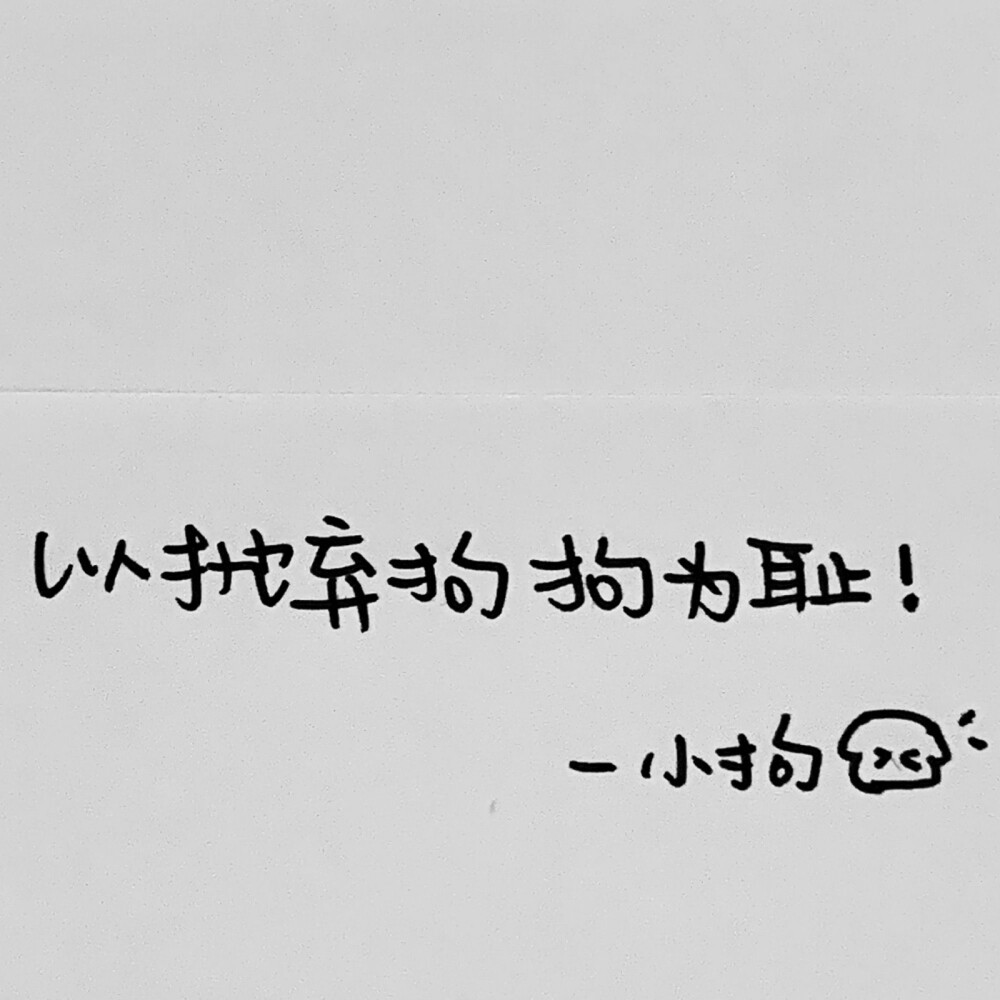 以抛弃狗狗为耻!
一小狗